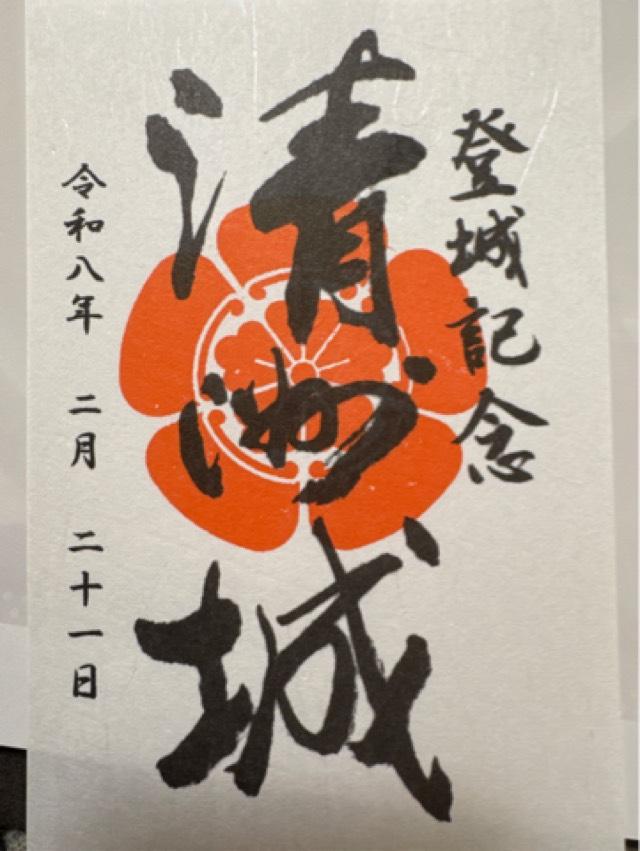 登城記念
清洲城
令和八年 二月 二十一日